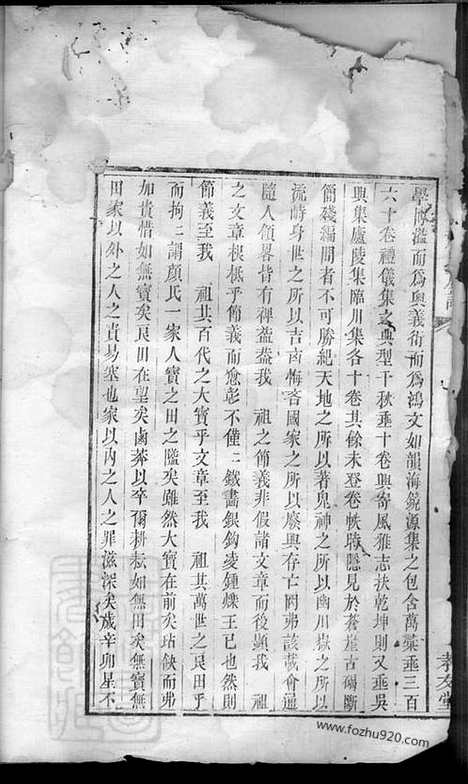 學博溢而爲奥義衍而爲鴻文如韻海鏡源集之包含萬彙垂三百
六十卷禮儀集之典型千秋垂十卷興寄風雅志扶乾坤則又垂吳
興集廬陵集臨川集各十卷其餘未登卷帙時隱見於蒼崖古碣斷
簡殘編間者不可勝紀天地之所以著鬼神之所以幽川嶽之所以
流峙身世之所以吉凶悔吝國家之所以廢興存亡罔弗該載會通
隨人領畧皆有裨益葢我 祖之簡義非假諸文章而後顯我 祖
之文章根柢乎簡義而愈彰不僅二鐵畵銀鈎凌鍾爍王已也然而
簡義至我 祖其百代之大寶乎文章至我 祖其萬世之良田乎
而拘二謂顔氏一家人寶之田之隘矣雖然大寶在前矣玷缺而弗
加貴惜如無寶矣良田在望矣鹵莽以卒爾耕耘如無田矣無寶無
田家以外之人之責易塞也家以內之人之罪滋深矣歲辛卯星不
www.fozhu920.com